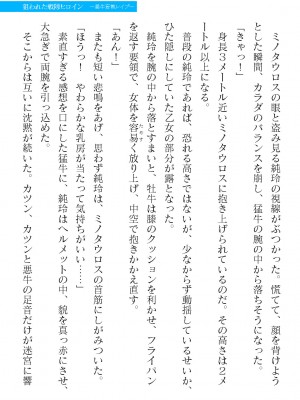 狙われた戦隊ヒロイン
ミノタウロスの眼と盗み見る純玲の視線がぶつかった。慌てて、顔を背けよう
とした瞬間、カラダのバランスを崩し、猛牛の腕の中から落ちそうになった。
「きゃっ！」
身長3メートル近いミノタウロスに抱き上げられているのだ。その高さは2メ
ートル以上になる。
普段の純玲であれば、恐れる高さではないが、少なからず動揺しているせいか、
ひた隠しにしていた乙女の部分が露となった。
純玲を腕の中から落とすまいと、牡牛は膝のクッションを利かせ、フライパン
を返す要領で、女体を容易く放り上げ、中空で抱きかかえ直す。
「んんっ！」
またも短い悲鳴をあげ、思わず純玲は、ミノタウロスの首筋にしがみついた。
「ほうっ！　やわらかな乳房が当たって気持ちがいい……」
素直すぎる感想を口にした猛牛に、純玲はヘルメットの中、貌を真っ赤にさせ、
大急ぎで両腕を引っ込めた。
そこからは互いに沈黙が続いた。カツン、カツンと悪牛の足音だけが迷宮に響